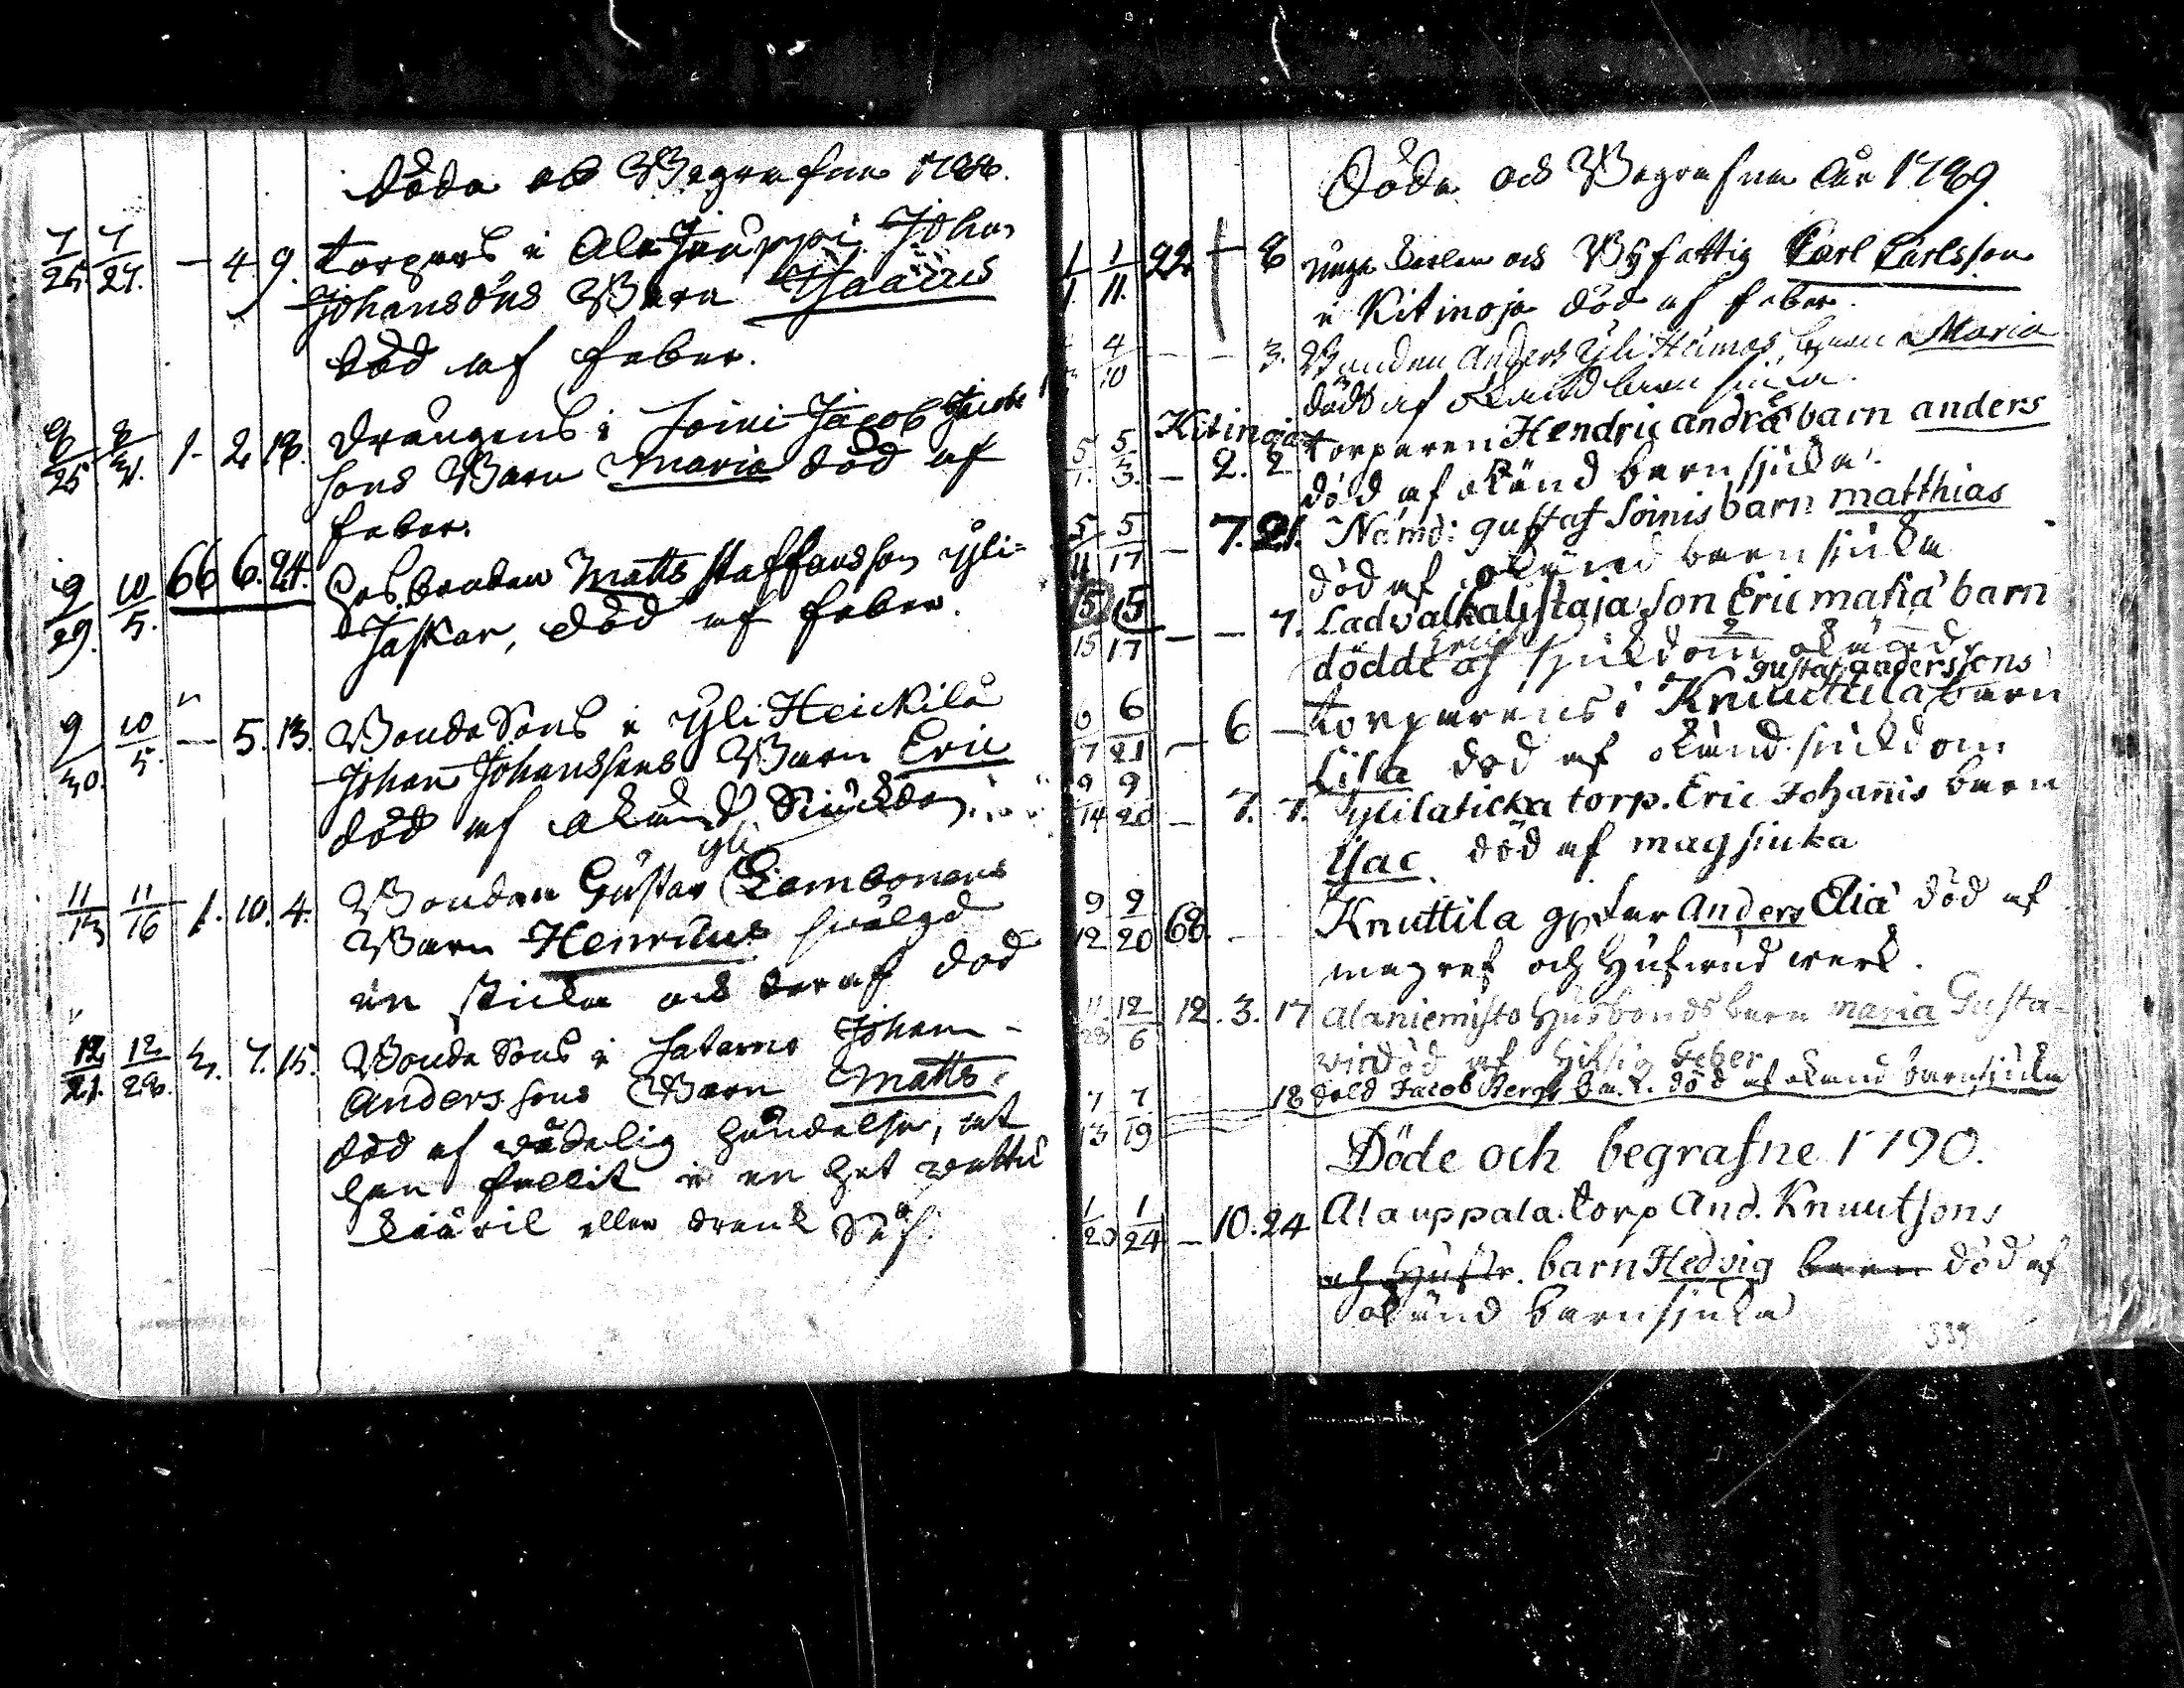 Döda och Begrafna 1788.
7/25 7/27. — 4. 9. Torpens i Ala Jauppi Johan
Johansons Barn Isaacus
död af feber.
8/25 8/31. 1. 2. 18. Drängens i Soini Jacob Jacobs
sons Barn Maria död af
feber.
9/29. 10/5. 66 6. 24. Husbonden Matts Staffansson Yli-
Jaskar, död af feber.
9/30. 10/5. — 5. 13. Bonde Sons i Yli Heickilä
Johan Johanssons Barn Eric
död af okänd Siuckdom
yli
11/13 11/16 1. 10. 4. Bonden Gustav Lambonens
Barn Henricus swälgd
en sticka och deraf död
12/21. 12/28. 3. 7. 15. Bonde Sons i Johan
Anderssons Barn Matts
död af wådelig händelse, at
han fallit i en het wattu
kiäril eller drank Så.
Döda och Begrafna år 1789.
1/1. 1/11. 22. — 8 unge Karlen och Byfattig Carl Carlsson
i Kitinoja död af feber.
4/10 — — 3. Bonden Anders Yli Humos barn Maria
död af okänd barnsjuka.
Kitinoja torparen Hendric andrä barn anders
5/1. 5/3. — 2. 2 död af okänd barnsjuka.
5/11 5/17 — 7. 21. Nämd: gustaf Soinis barn matthias
död af okänd barnsjuka
5/15 5/17 — — 7. Ladvalkalistaja son Eric barn
Eric
dödde af sjukdom okänd
gustaf anderssons
6/17 6/21 — 6 — torparens i Knuuttila barn
Lisa död af okänd sjukdom
9/14 9/20 — 7. 7. Ylilaticka torp. Eric Johannis barn
Isac död af magsiuka
9/12 9/20 68. — Knuttila Anders Eliä död af
magref och Hufwud werk.
11/28 12/6 12. 3. 17 Alaniemisto Husbonds barn maria Gusta-
död af hitsig Feber
7/13 7/19 18 Sold Jacob Bergs död af okänd barnsjuka
Döde och begrafne 1790.
1/20 1/24 — 10. 24 Ala uppala torp And. Knuutsons
och Hustr. barn Hedvig barn död af
okänd barnsjuka
339